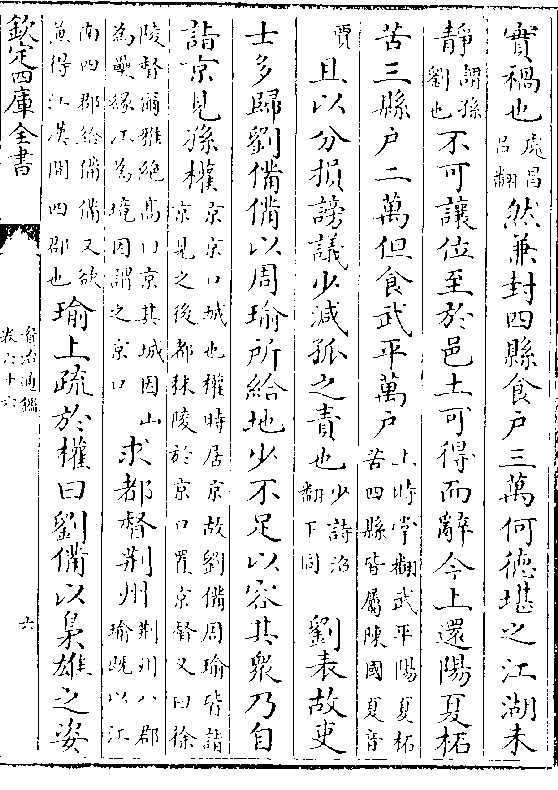 實禍也處昌呂翻然兼封四縣食户三萬何德堪之江湖未
靜謂孫劉也不可讓位至於邑土可得而辭今上還陽夏柘
苦三縣户二萬但食武平萬户上時掌翻武平陽夏柘苦四縣皆屬陳國夏音
賈且以分損謗議少減孤之責也少詩沼翻下同劉表故吏
士多歸劉備備以周瑜所給地少不足以容其衆乃自
詣京見孫權京京口城也權時居京故劉備周瑜皆詣京見之後都秣陵於京口置京督又曰徐
陵督爾雅絶高曰京其城因山為壘緣江為境因謂之京口求都督荆州荆州八郡瑜既以江
南四郡給備備又欲兼得江漢間四郡也瑜上疏於權曰劉備以梟雄之姿
欽定四庫全書
資治通鑑
卷六十六
六